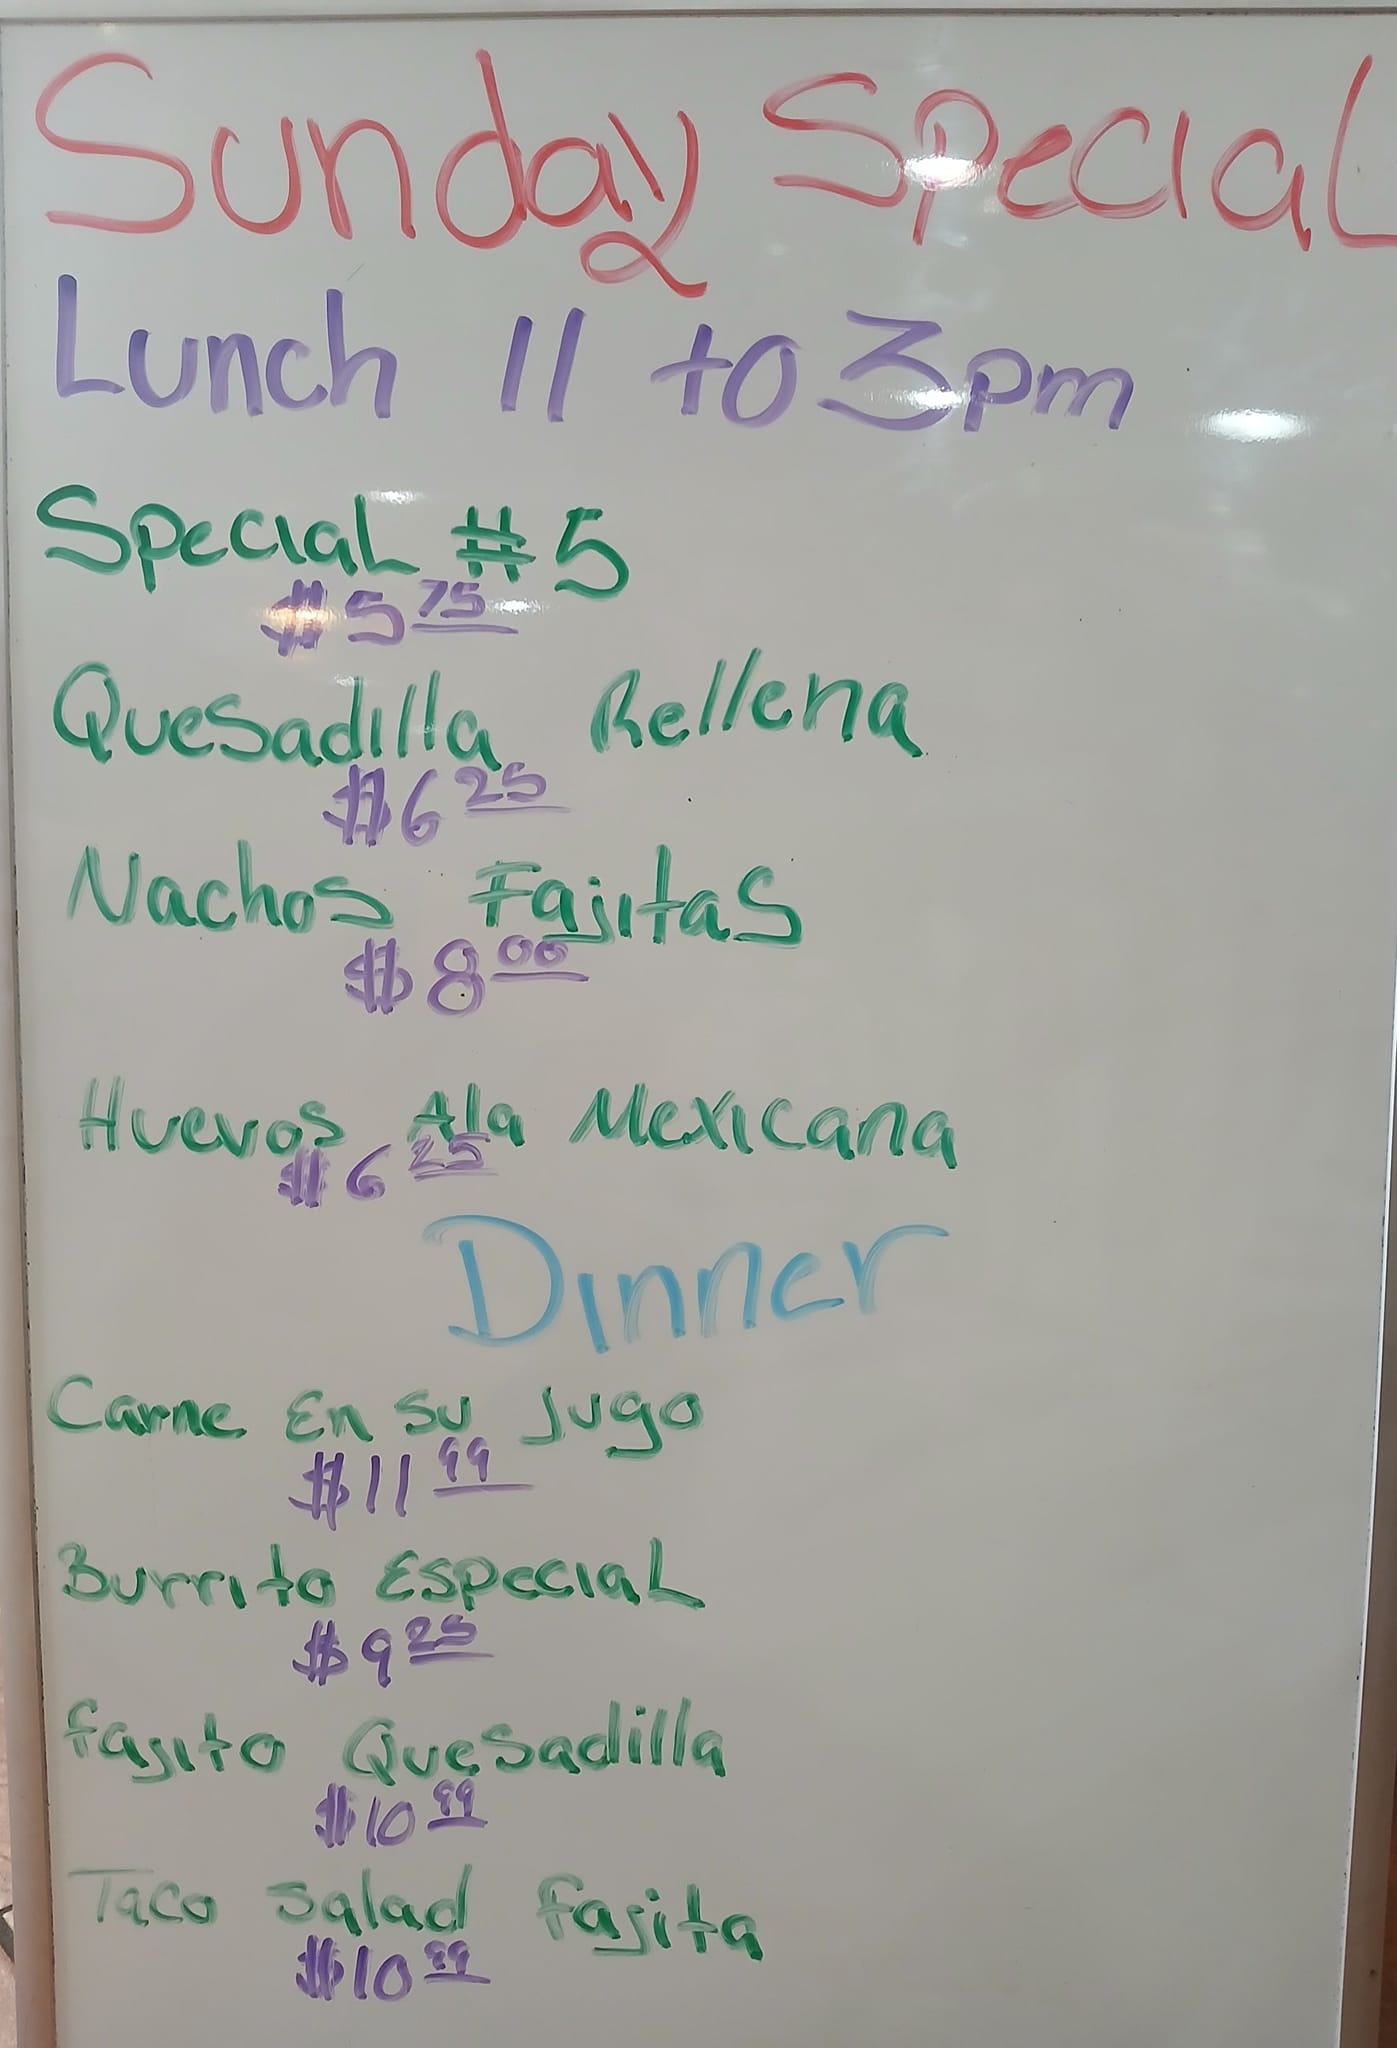 Sunday Special
Lunch 11 to 3pm
Special #5
$5 75
Quesadilla Rellena
$6 25
Nachos Fajitas
$8 00
Huevos Ala Mexicana
$6 25
Dinner
Carne En Su Jugo
$11 99
Burrito Especial
$9 25
fajito Quesadilla
$10 99
Taco Salad Fajita
$10 99